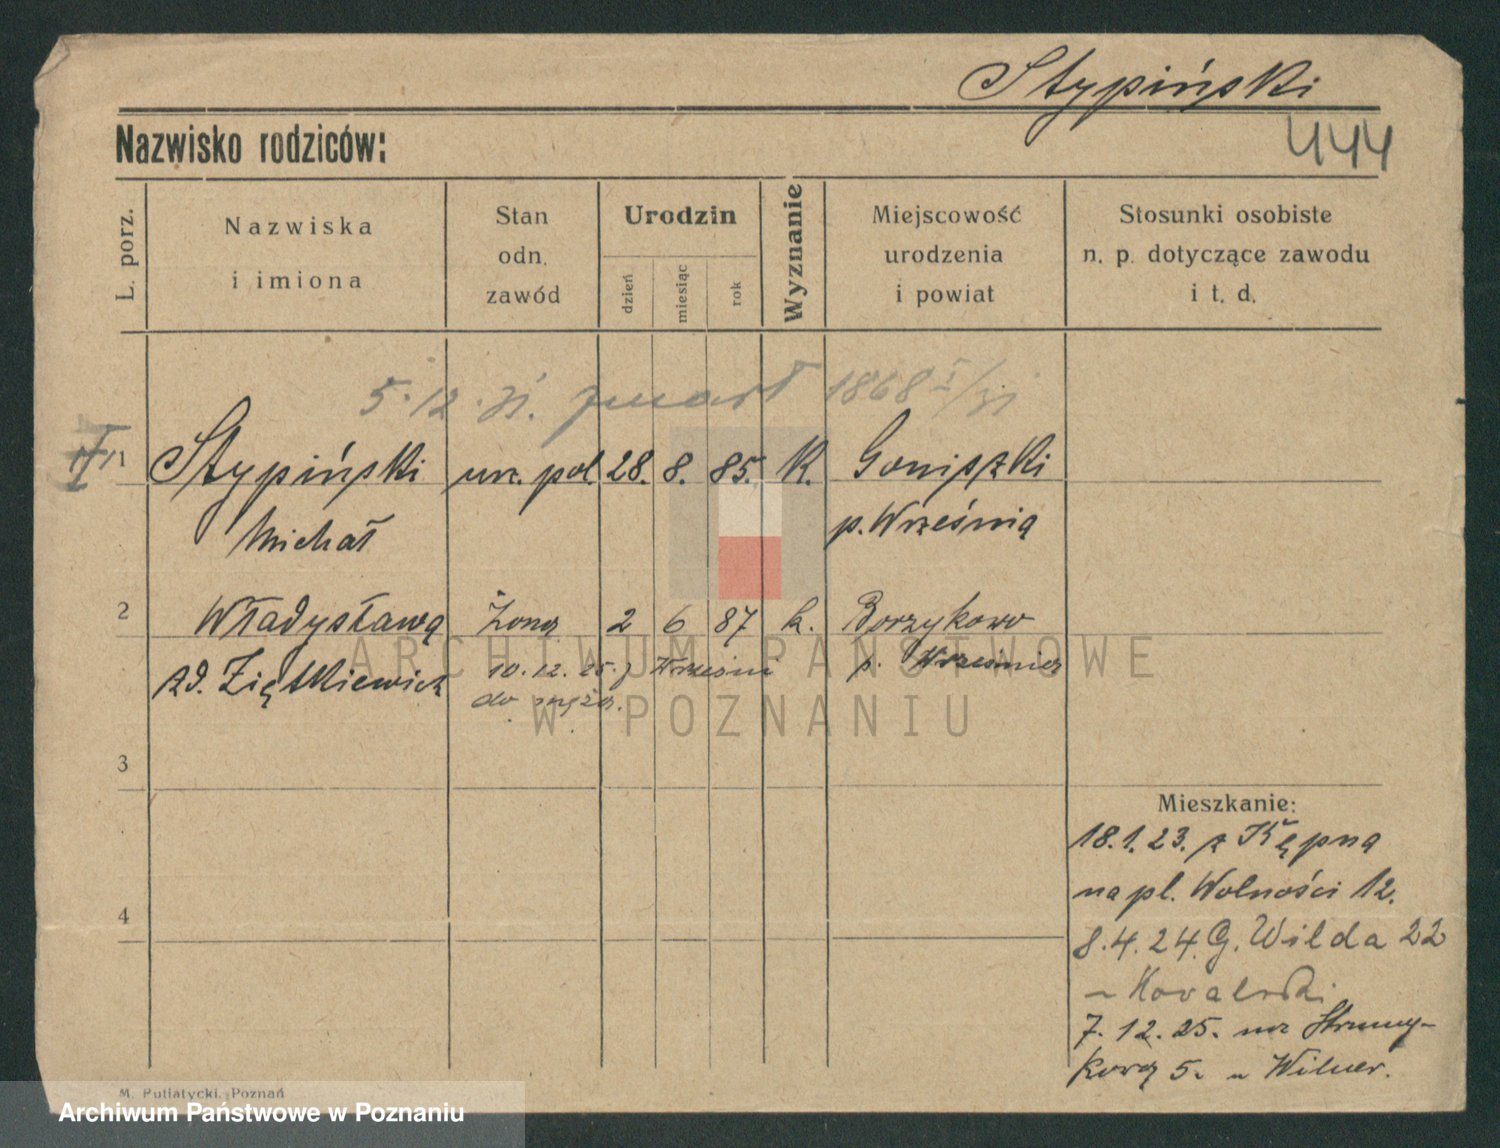 Stypiński
444
Nazwisko rodziców:
L. porz.
Nazwiska
i imiona
Stan
odn.
zawód
Urodzin
dzień
miesiąc
rok
Wyznanie
Miejscowość
urodzenia
i powiat
Stosunki osobiste
n. p. dotyczące zawodu
i t. d.
5.12.31. zmarł 1868 I/31
1 Stypiński urz. pol. 28. 8. 85. K.
Michał p. Wrześnią
2 Władysława Żona 2 6 87 k. Borzykowo
zd. Ziętkiewicz 10.12.25. z Wrześni p. Września
do męża.
3
4
Mieszkanie:
18.1.23. z Kępna
na pl. Wolności 12.
8.4.24. G. Wilda 22
u Kowalski.
7.12.25. na Strumy-
kową 5. u
M. Putiatycki, Poznań
ARCHIWUM PAŃSTWOWE
W POZNANIU
Archiwum Państwowe w Poznaniu